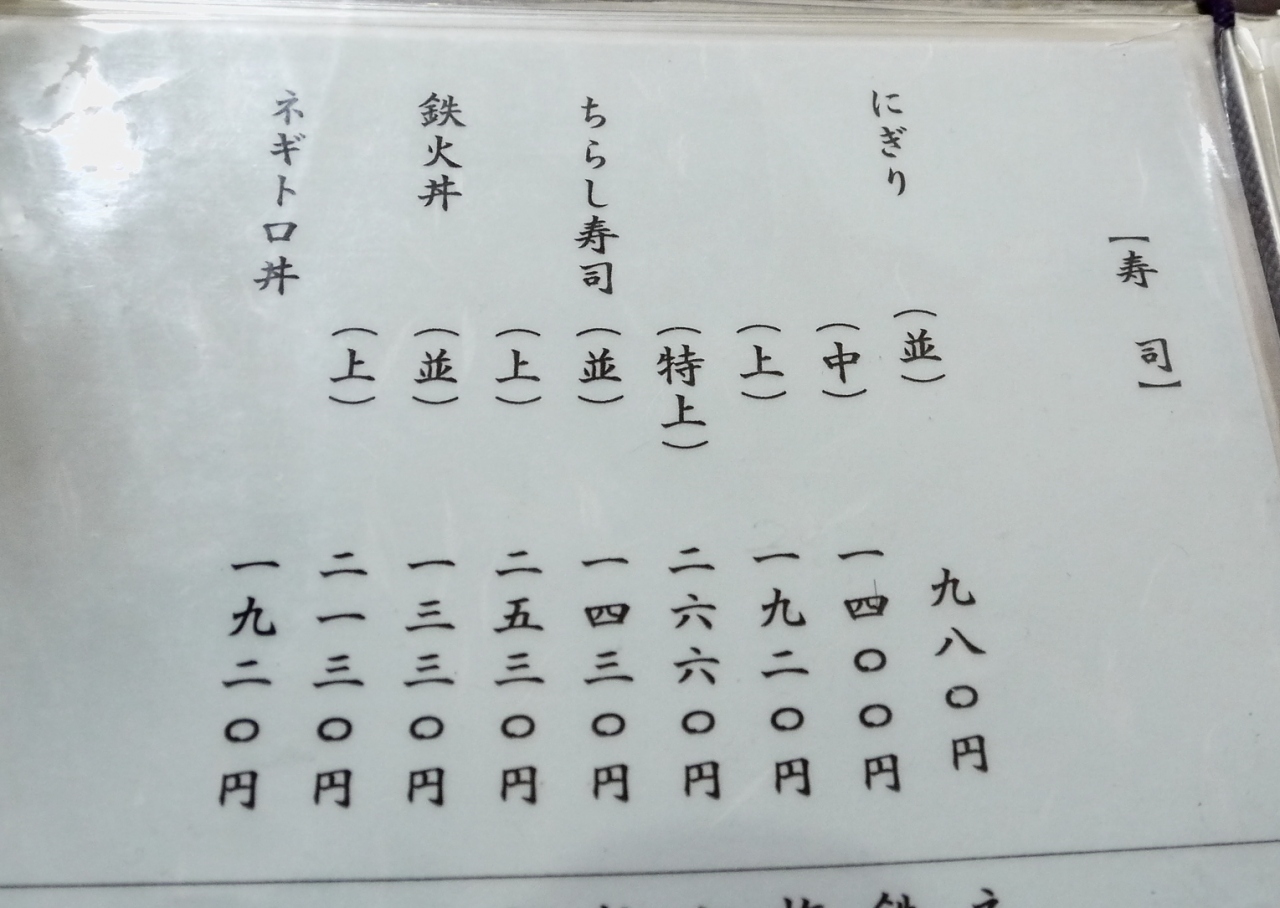 【寿 司】
にぎり (並) 九八〇円
(中) 一四〇〇円
(上) 一九二〇円
(特上) 二六六〇円
ちらし寿司 (並) 一四三〇円
(上) 二五三〇円
鉄火丼 (並) 一三三〇円
(上) 二一三〇円
ネギトロ丼 一九二〇円